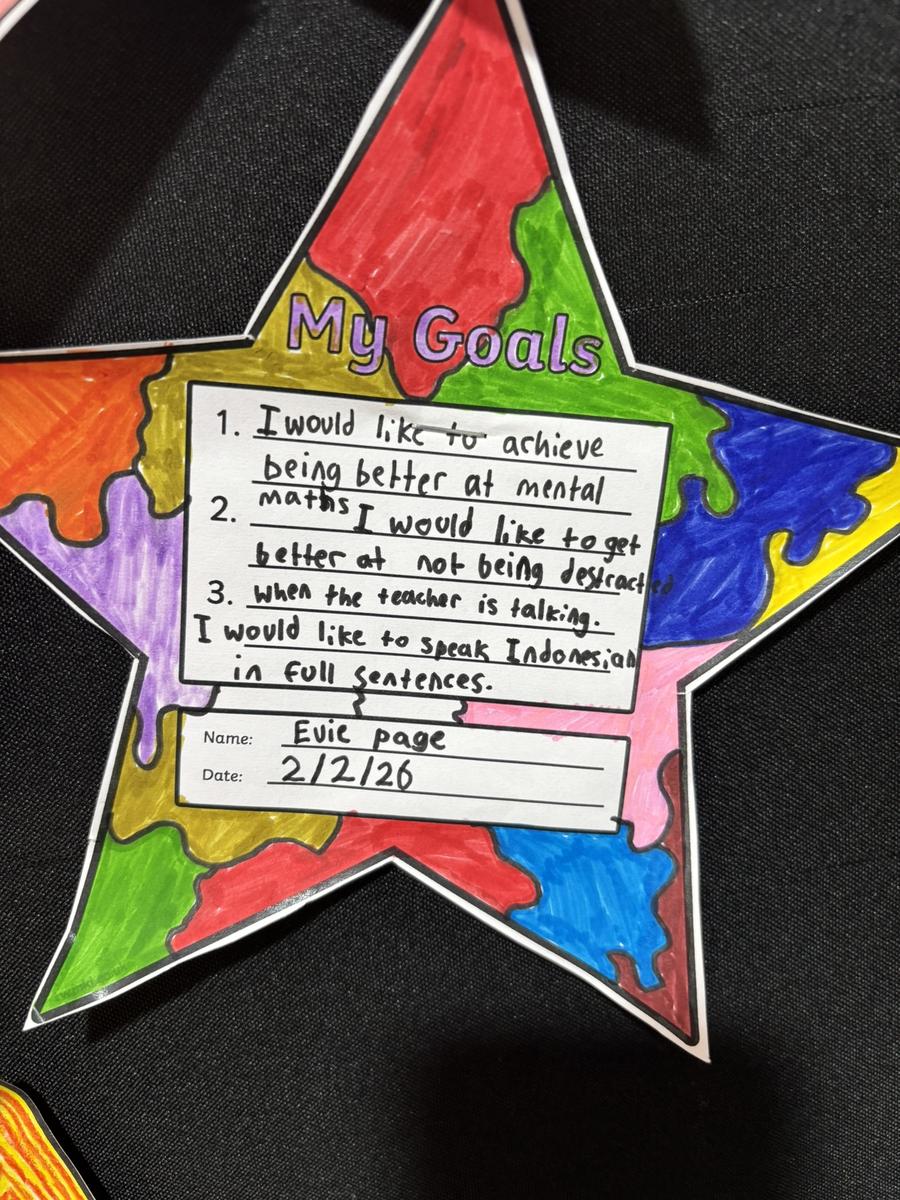 My Goals
1. I would like to achieve
being better at mental
maths
2. I would like to get
better at not being destracted
3. when the teacher is talking.
I would like to speak Indonesian
in full sentences.
Name: Evie page
Date: 2/2/26